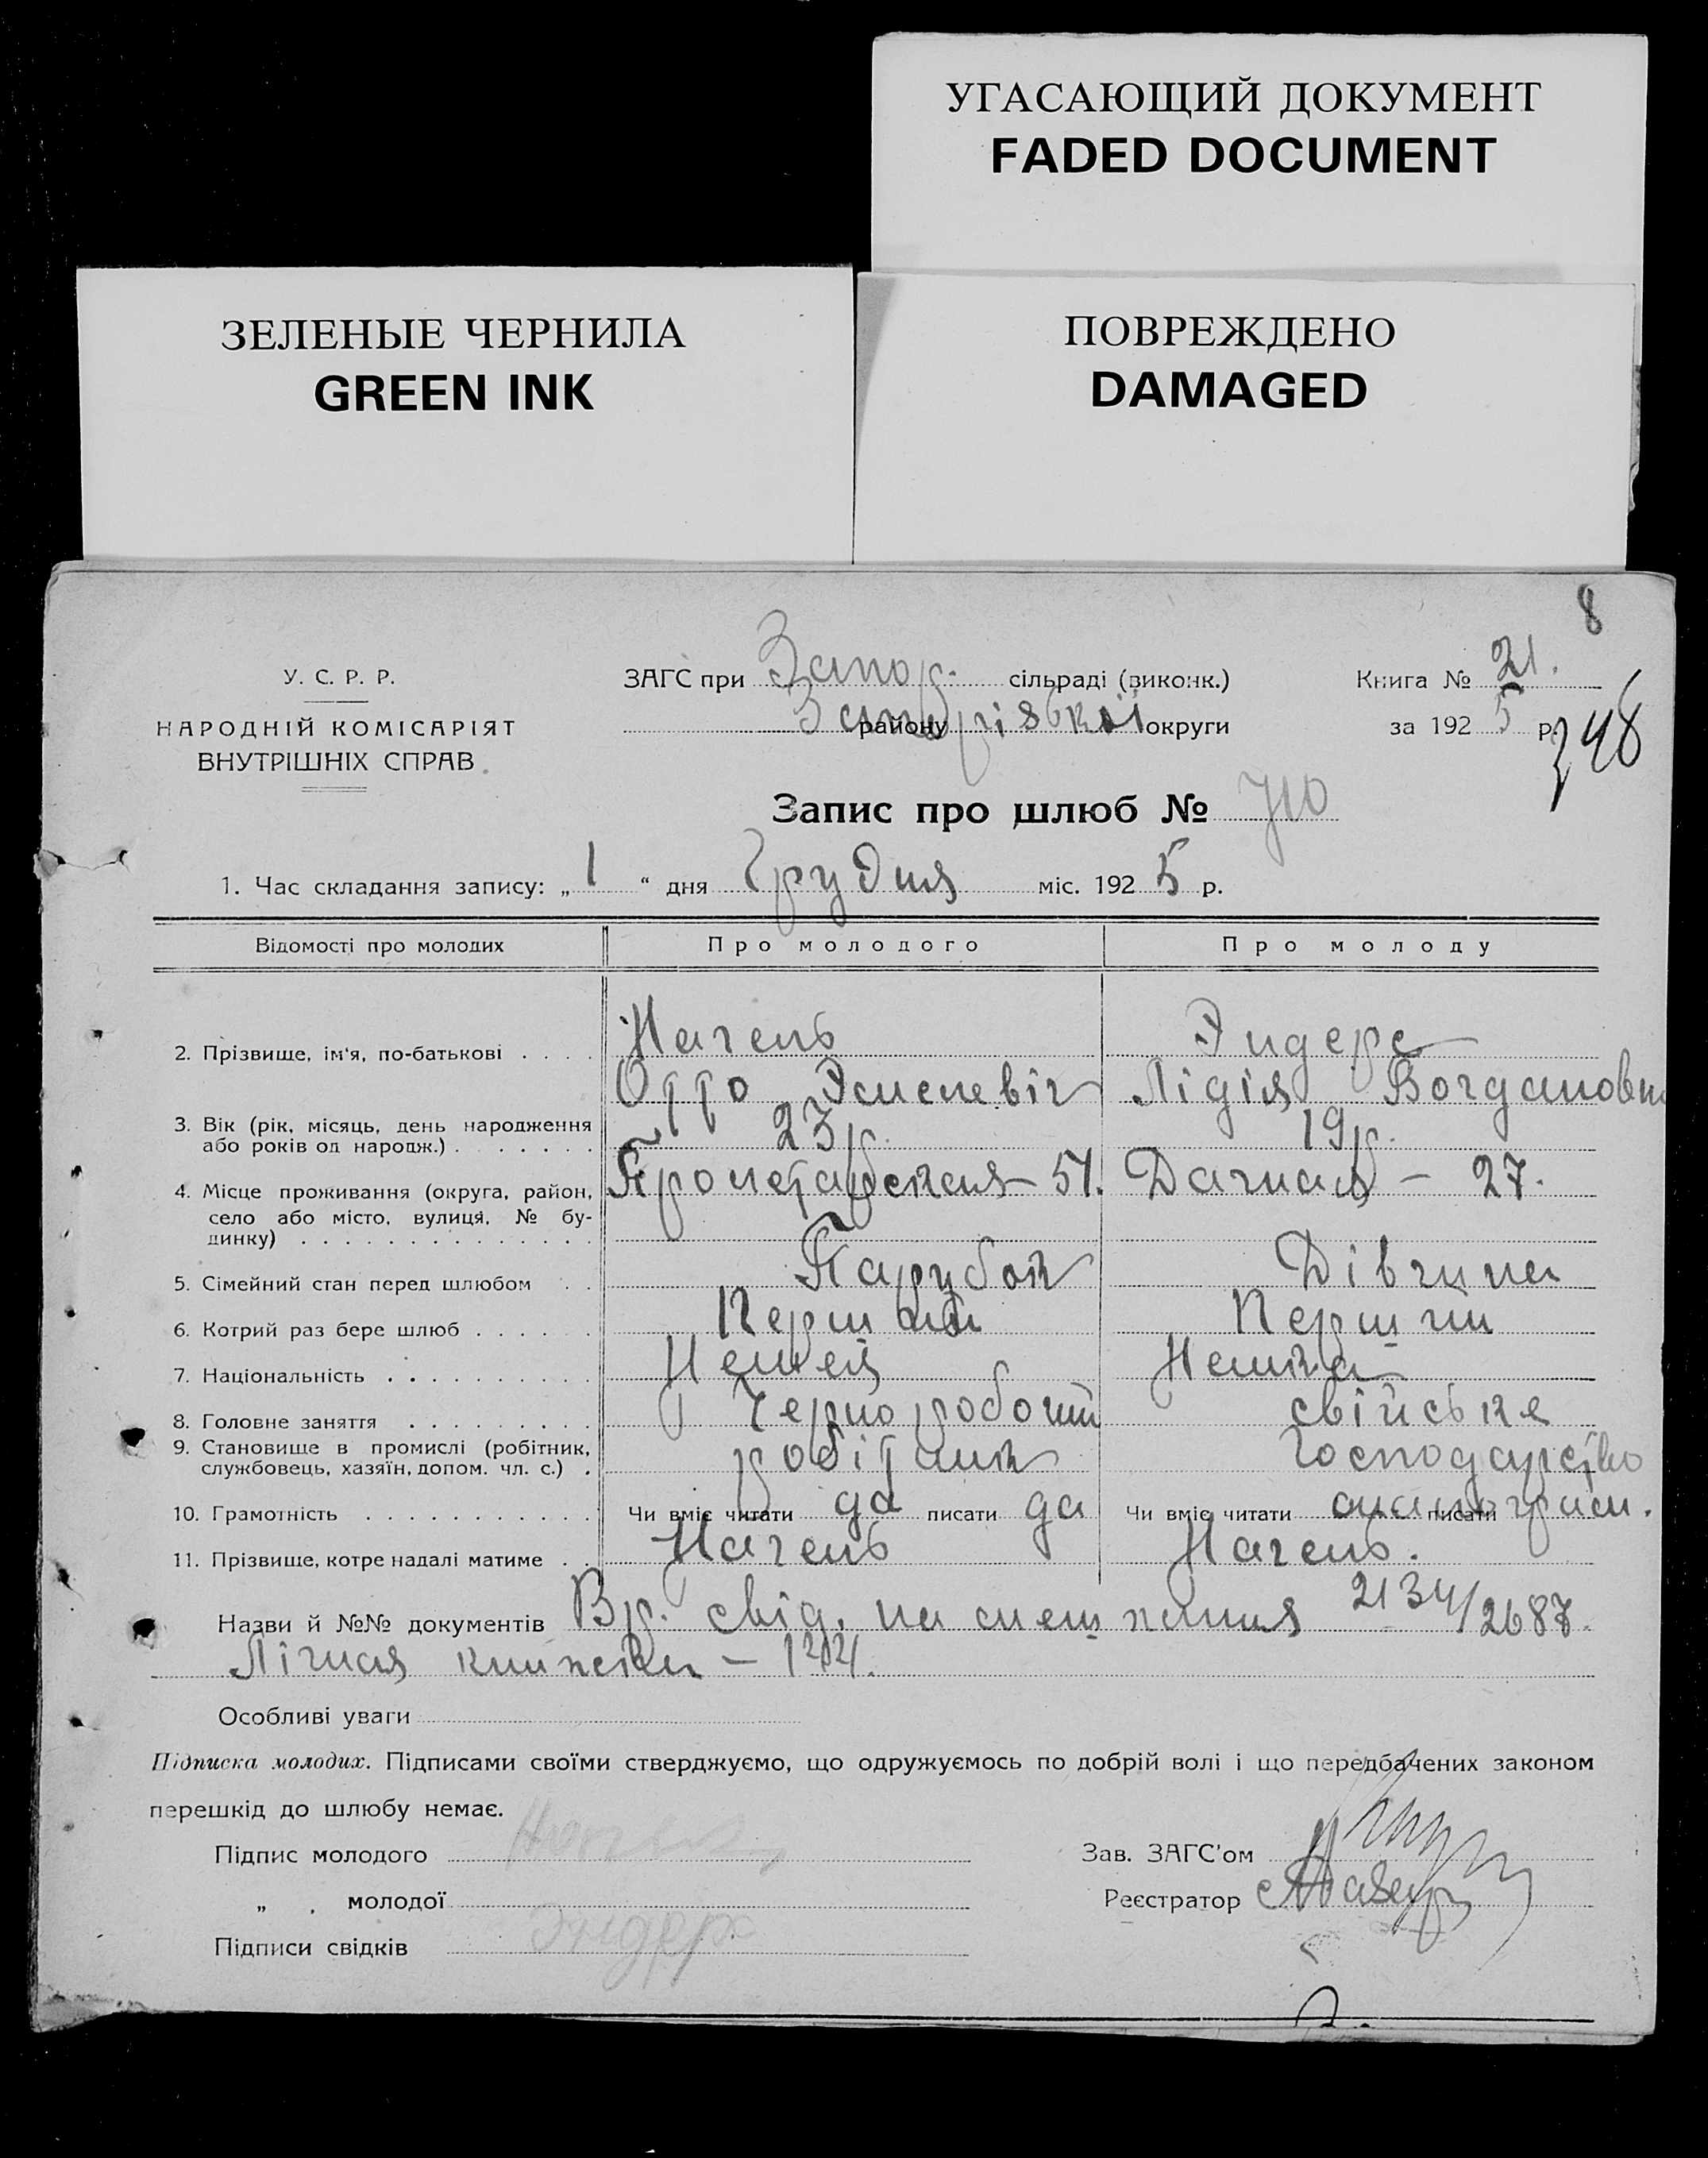 УГАСАЮЩИЙ ДОКУМЕНТ
FADED DOCUMENT
ЗЕЛЕНЫЕ ЧЕРНИЛА
GREEN INK
ПОВРЕЖДЕНО
DAMAGED
8
У. С. Р. Р.
НАРОДНІЙ КОМІСАРІЯТ
ВНУТРІШНІХ СПРАВ
ЗАГС при Запор. сільраді (виконк.)
району Запорізької округи
Книга № 21.
за 1925 р.
348
Запис про шлюб № 710
1. Час складання запису: „1“ дня Грудня міс. 1925 р.
Відомості про молодих Про молодого Про молоду
2. Прізвище, ім'я, по-батькові . . . . Нагель Эндерс
Отто Эмилевіч Лідія Богдановна
3. Вік (рік, місяць, день народження
або років од народж.) . . . . . . . 23 р. 19 р.
4. Місце проживання (округа, район, Пролетарская – 51. Дачная – 27.
село або місто, вулиця, № бу-
динку) . . . . . . . . . . . . . .
5. Сімейний стан перед шлюбом . . Парубок Дівчина
6. Котрий раз бере шлюб . . . . . . Перший Перший
7. Національність . . . . . . . . . . Немец Немка
8. Головне заняття . . . . . . . . . Чернороботий свійське
9. Становище в промислі (робітник,
службовець, хазяїн, допом. чл. с.) . робітник господарство
10. Грамотність . . . . . . . . . . . Чи вміє читати да писати да Чи вміє читати писати
11. Прізвище, котре надалі матиме . . Нагель Нагель.
Назви й №№ документів Вр. свід. на мешкання 2134/2687.
Лічная книжка – 1224.
Особливі уваги
Підписка молодих. Підписами своїми стверджуємо, що одружуємось по добрій волі і що передбачених законом
перешкід до шлюбу немає.
Підпис молодого Зав. ЗАГС'ом
„ . молодої Реєстратор
Эндерс
Підписи свідків